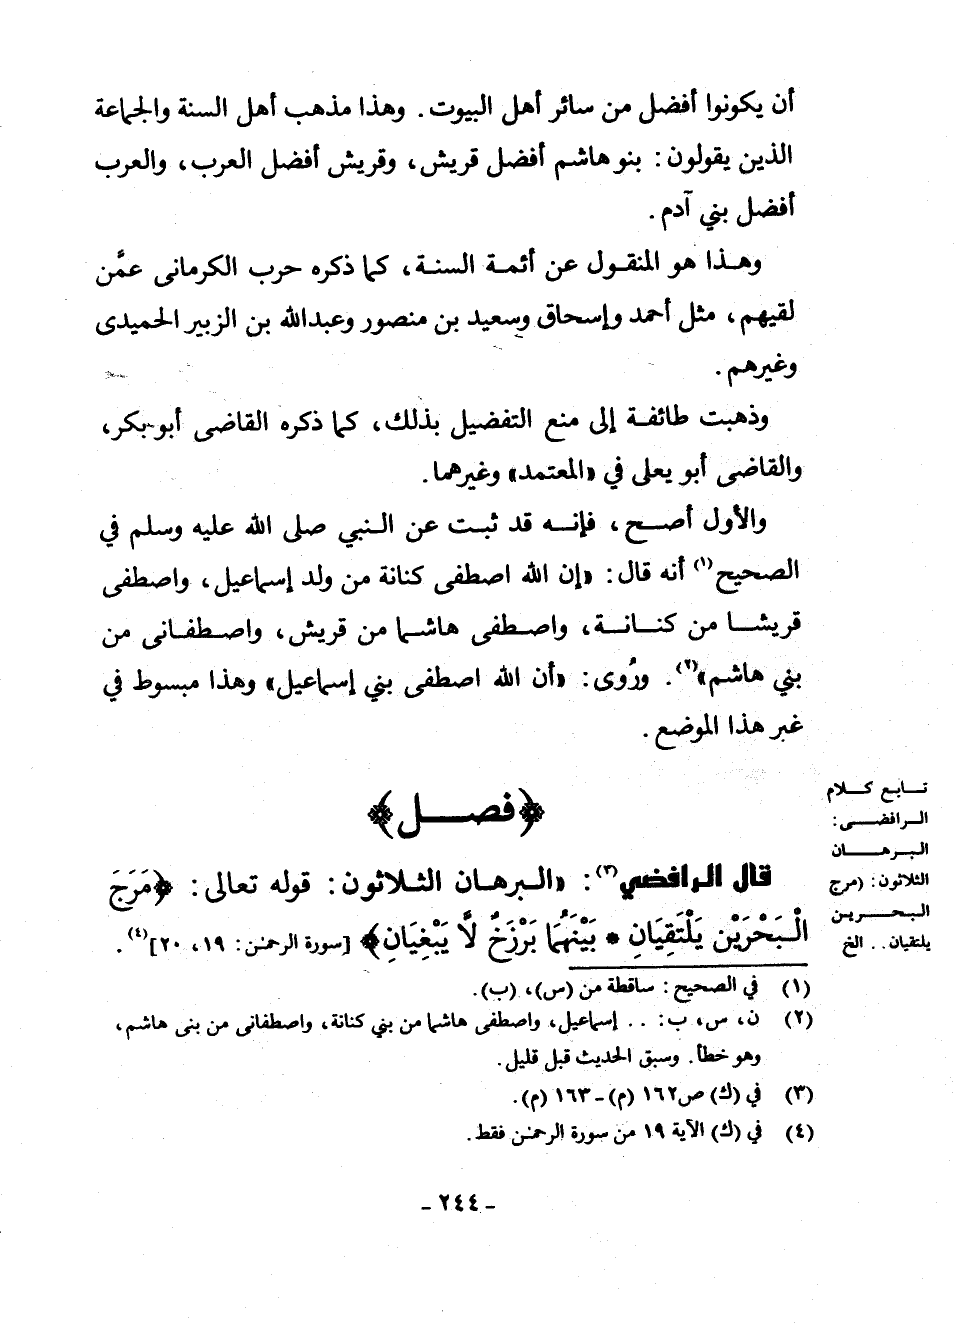 أن يكونوا أفضل من سائر أهل البيوت. وهذا مذهب أهل السنة والجماعة
الذين يقولون: بنو هاشم أفضل قريش، وقريش أفضل العرب، والعرب
أفضل بني آدم.
وهذا هو المنقول عن أئمة السنة، كما ذكره حرب الكرمانى عمَّن
لقيهم، مثل أحمد وإسحاق وسعيد بن منصور وعبدالله بن الزبير الحميدى
وغيرهم.
وذهبت طائفة إلى منع التفضيل بذلك، كما ذكره القاضى أبو بكر،
والقاضى أبو يعلى في «المعتمد» وغيرهما.
والأول أصح، فإنه قد ثبت عن النبي صلى الله عليه وسلم في
الصحيح(١) أنه قال: «إن الله اصطفى كنانة من ولد إسماعيل، واصطفى
قريشا من كنانة، واصطفى هاشما من قريش، واصطفانى من
بني هاشم»(٢). ورُوى: «أن الله اصطفى بني إسماعيل» وهذا مبسوط في
غبر هذا الموضع.
﴿فصل﴾
قال الرافضي(٣): «البرهان الثلاثون: قوله تعالى: ﴿مَرَجَ
الْبَحْرَيْنِ يَلْتَقِيَانِ * بَيْنَهُمَا بَرْزَخٌ لَّا يَبْغِيَانِ﴾ [سورة الرحمٰن: ١٩، ٢٠](٤).
تابع كلام
الرافضى:
البرهان
الثلاثون: (مرج
البحرين
يلتقيان.. الخ
(١) في الصحيح: ساقطة من (س)، (ب).
(٢) ن، س، ب: .. إسماعيل، واصطفى هاشما من بني كنانة، واصطفانى من بنى هاشم،
وهو خطأ. وسبق الحديث قبل قليل.
(٣) في (ك) ص١٦٢ (م) - ١٦٣ (م).
(٤) في (ك) الآية ١٩ من سورة الرحمٰن فقط.
- ٢٤٤ -